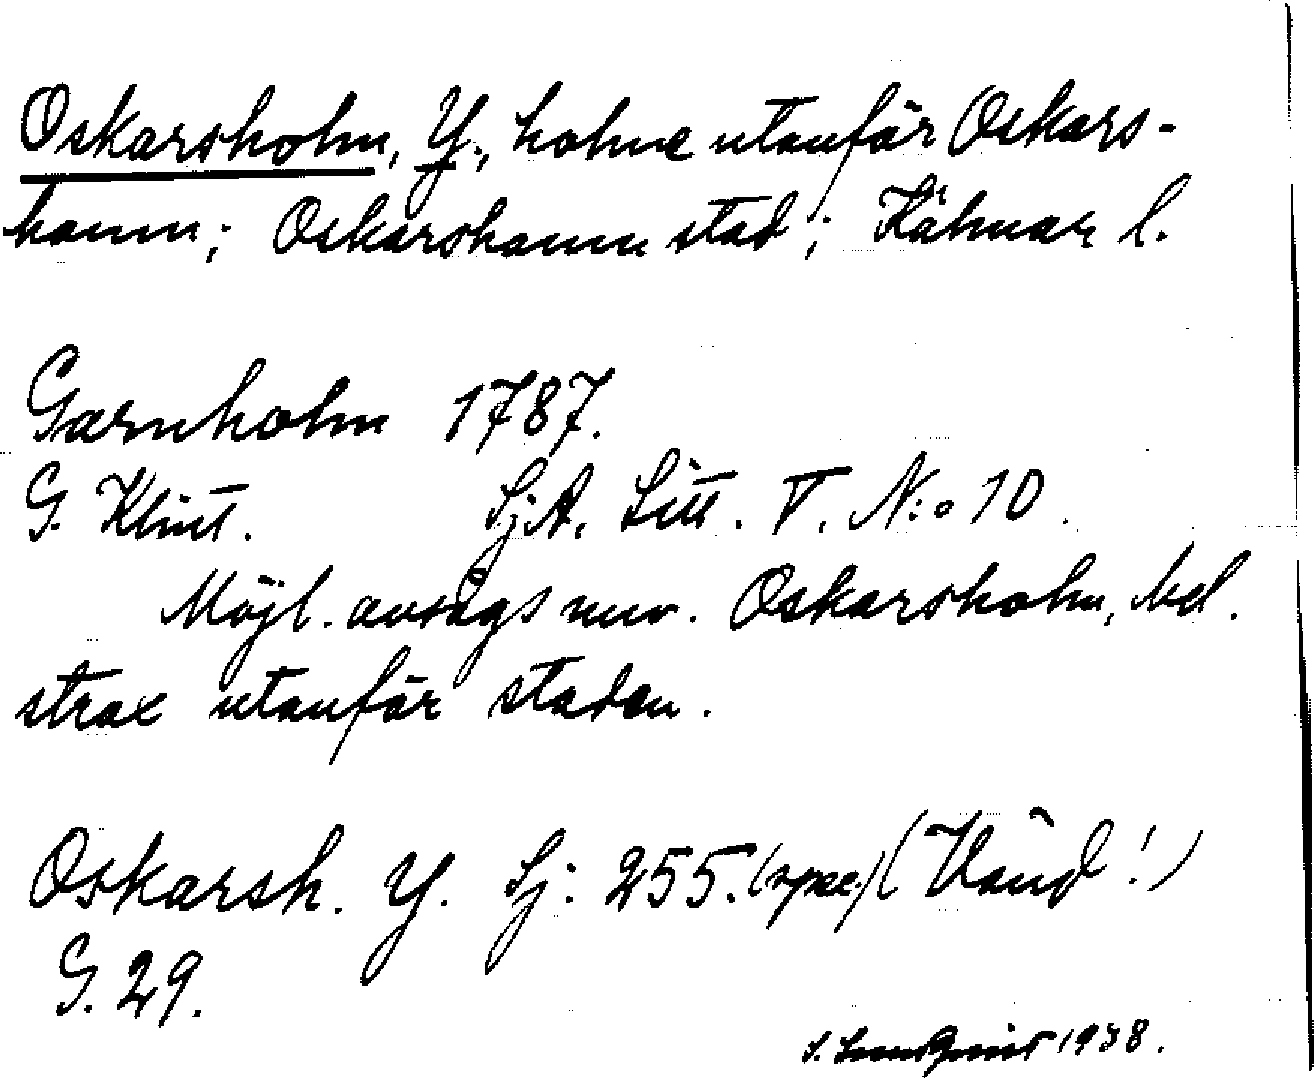 Oskarsholm, Y., holme utanför Oskars-
hamn; Oskarshamn stad; Kalmar l.
Garnholm 1787.
G. Klint. SjA. Litt. V. N:o 10.
Möjl. avsågs nuv. Oskarsholm, bel.
strax utanför staden.
Oskarsh. Y. Sj: 255. (spec.) (Vänd!)
G. 29.
S. Lundqvist 1938.